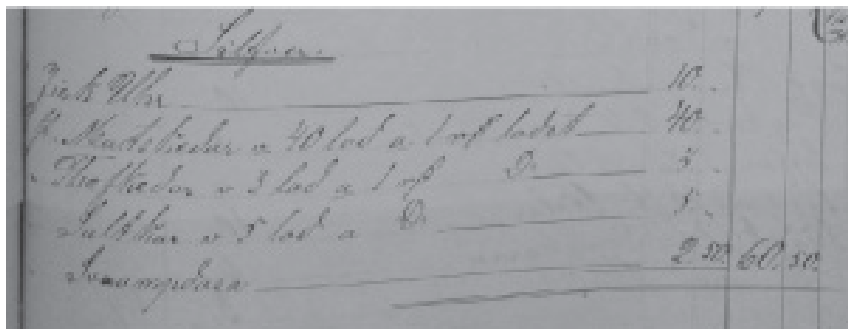 Silfver.
Fick Uhr 10. -
Matskedar v 40 lod a 1 rd lodet 40. -
Theskedar v 3 lod a 1 rd D:o 3. -
Saltkar v 5 lod a D:o 5. -
Svampdosa 2 50. 60. 50.